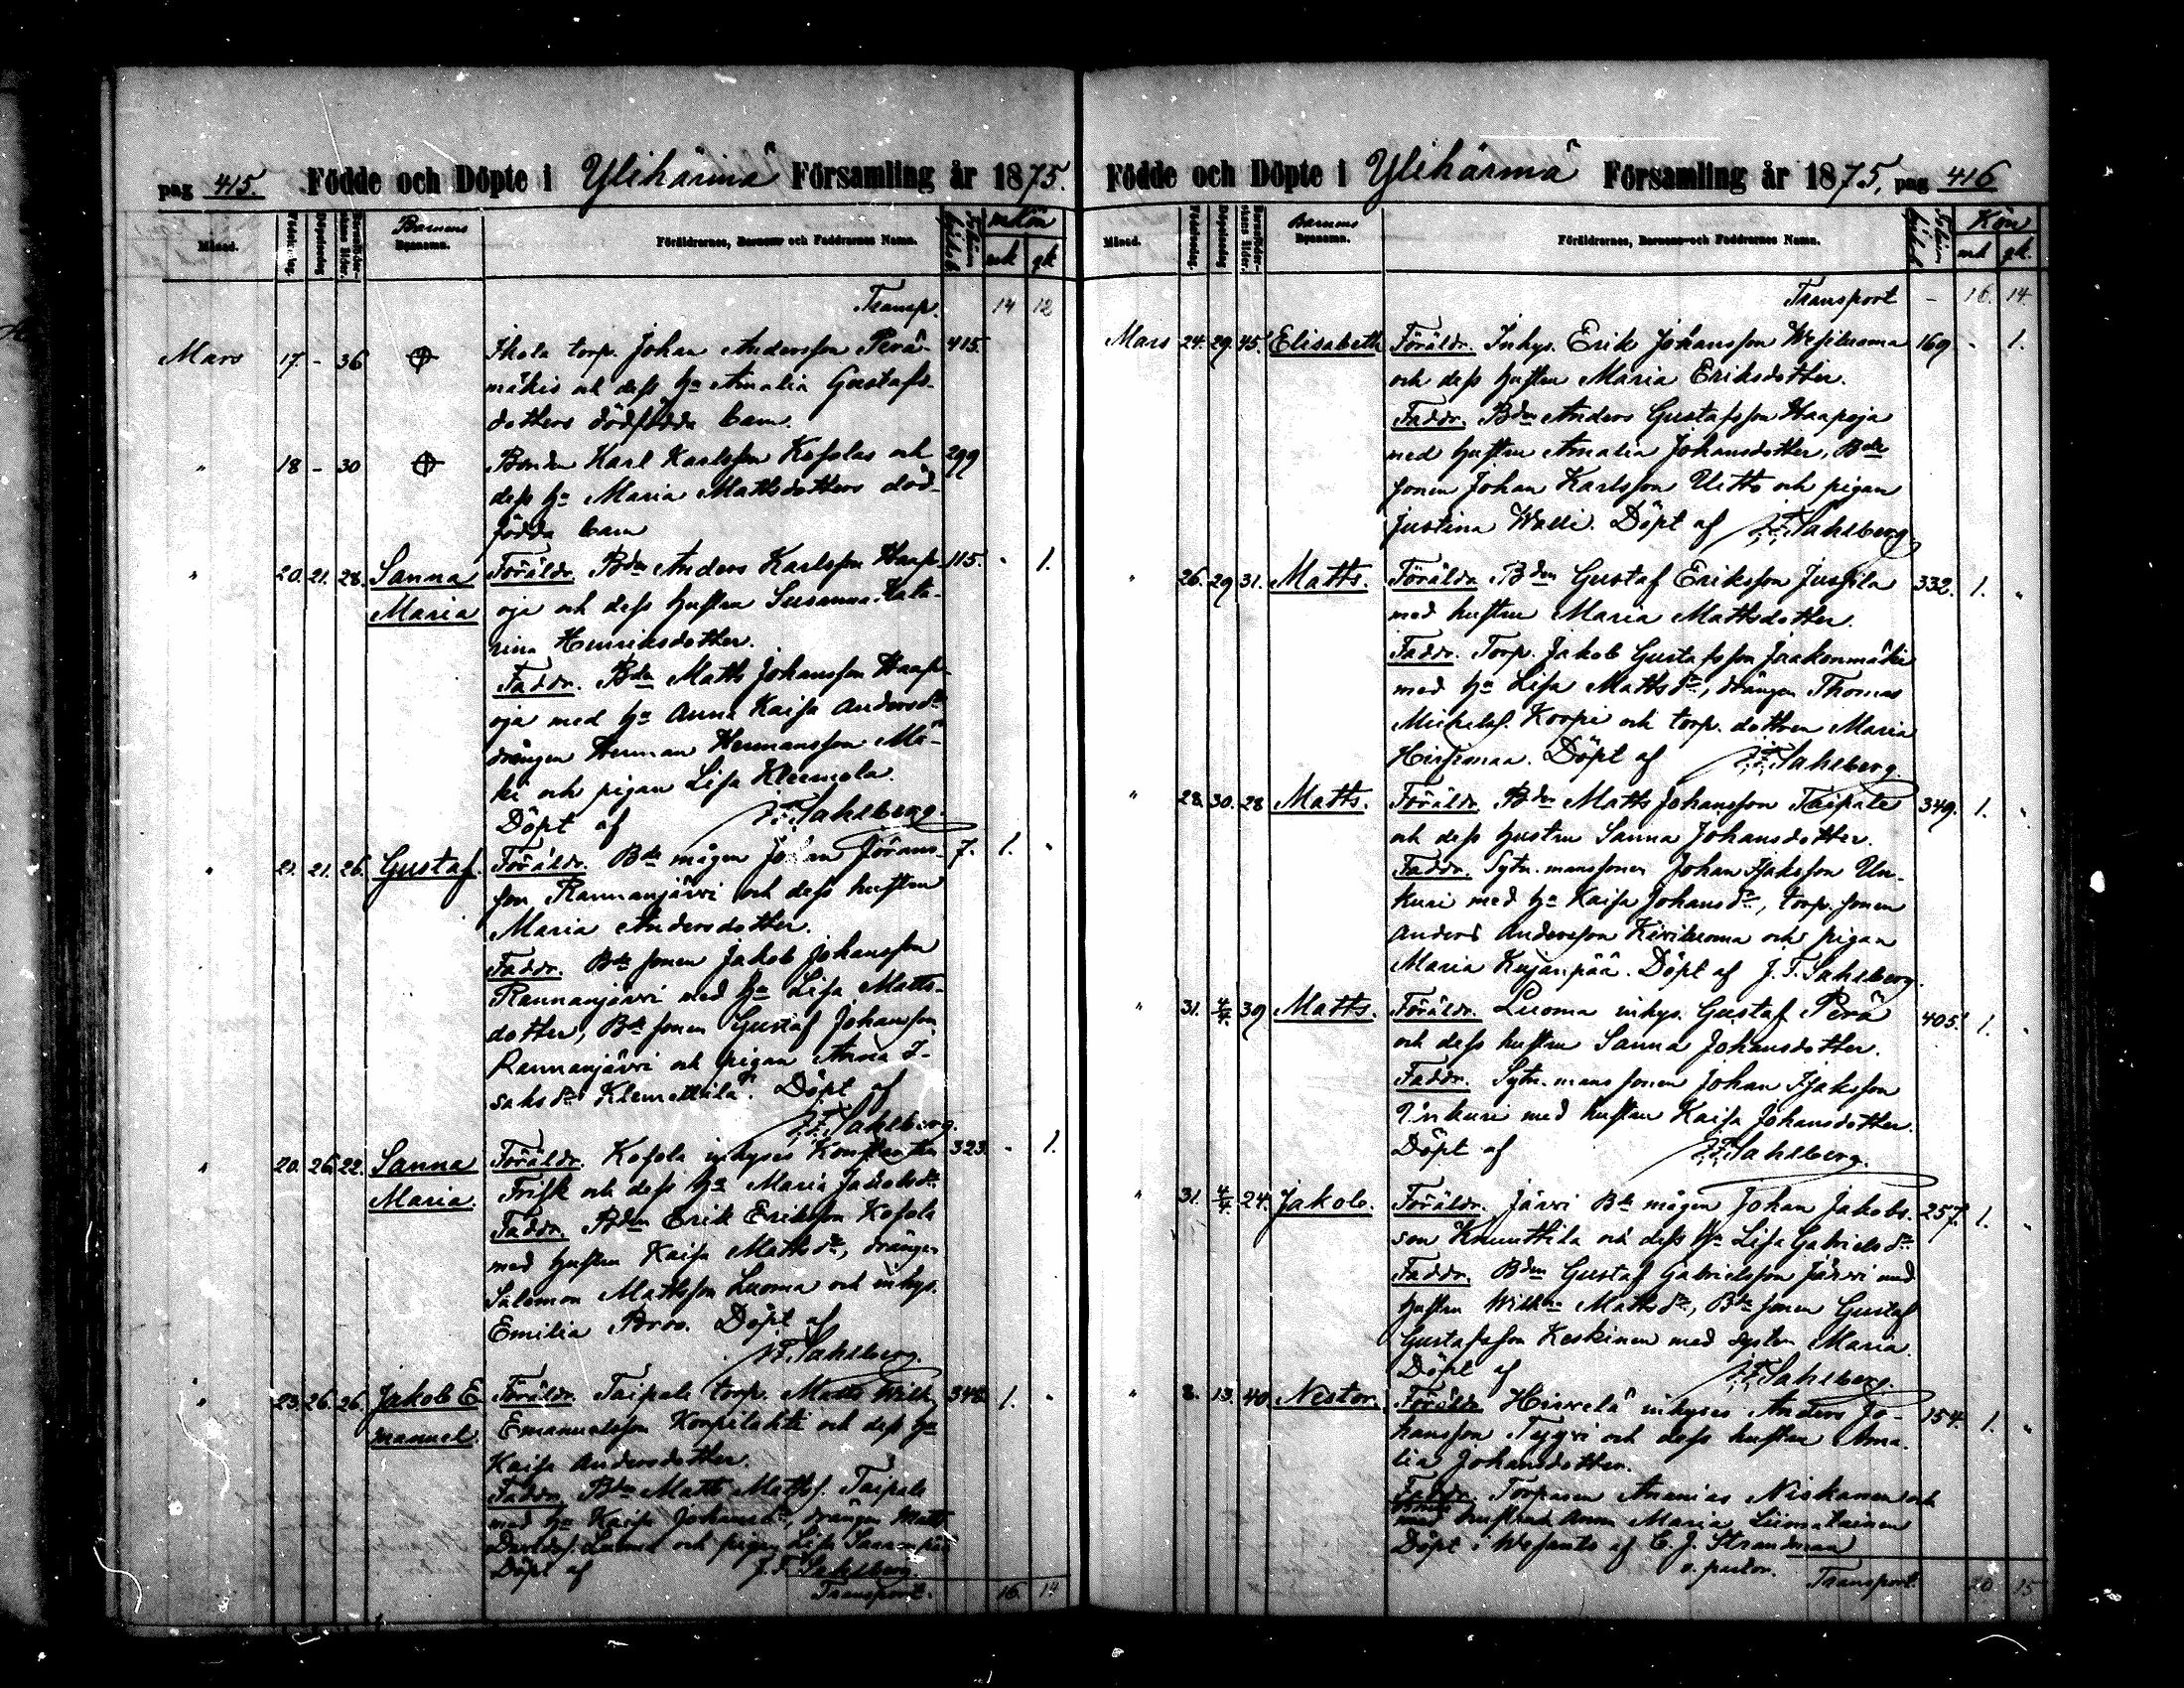 pag 415. Födde och Döpte i Ylihärmä Församling år 1875.
Månad. Födelsedag. Döpelsedag Barnens Egnenamn. Föräldrarnes, Barnens och Faddrarnes Namn. Kön
mk qk
Transp. 14 12
Mars 17. - 36 Ihola torp. Johan Andersson Perä- 415.
mäkis och dess hu Amalia Gustafs-
dotters dödfödda barn.
" 18 - 30 Bonden Karl Karlsson Kosolas och 299
dess hu Maria Mattsdotters död-
födda barn
" 20. 21. 28. Sanna Föräldr. Bden Anders Karlsson Haap- 115. " 1.
Maria oja och dess hustru Susanna Kata-
rina Henriksdotter.
Faddr. Bden Matts Johansson Haap-
oja med hu Anna Kaisa Andersdr
drängen Herman Hermansson Mä-
ki och pigan Lisa Klemola.
Döpt af J.F. Sahlberg.
" 21. 21. 26. Gustaf. Föräldr. Bde mågen Johan Jörans- 7. 1. "
son Rannanjärvi och dess hustru
Maria Andersdotter.
Faddr. Bde sonen Jakob Johansson
Rannanjärvi med hu Lisa Matts-
dotter, Bde sonen Gustaf Johansson
Rannanjärvi och pigan Anna I-
saksdr Klemettilä. Döpt af
J.F. Sahlberg.
" 20. 26. 22. Sanna Föräldr. Kosola inhyses Konstantin 323. " 1.
Maria. Frisk och dess hu Maria Jakobsdr
Faddr. Bden Erik Eriksson Kosola
med hustru Kaisa Mattsdr, drängen
Salomon Mattsson Luoma och inhys.
Emilia Broo. Döpt af
J.F. Sahlberg.
" 23. 26. 26. Jakob E Föräldr. Taipale torp. Matts Wilh. 348. 1. "
manuel. Emanuelsson Korpilahti och dess hu
Kaisa Andersdotter.
Faddr. Bden Matts Mattss. Taipale
med hu Kaisa Johansdr, drängen Matts
Luoma och pigan Lisa
Döpt af J.F. Sahlberg.
Transport. 16 14
Födde och Döpte i Ylihärmä Församling år 1875, pag 416
Månad. Födelsedag. Döpelsedag Barnens Egnenamn. Föräldrarnes, Barnens och Faddrarnes Namn. Kön
mk qk.
Transport - 16. 14
Mars 24. 29. 45. Elisabeth Föräldr. Inhys. Erik Johansson Wesiluoma 169 - 1.
och dess hustru Maria Eriksdotter.
Faddr. Bden Anders Gustafsson Haapoja
med hustru Amalia Johansdotter, Bde
sonen Johan Karlsson Uitto och pigan
Justina Walli. Döpt af J.F. Sahlberg
" 26. 29 31. Matts. Föräldr. Bden Gustaf Eriksson Jussila 332. 1. "
med hustru Maria Mattsdotter.
Faddr. Torp. Jakob Gustafsson Jaakonmäki
med hu Lisa Mattsdr, drängen Thomas
Michelss. Korpi och torp. dottren Maria
Hirsimaa. Döpt af J.F. Sahlberg.
" 28. 30. 28 Matts. Föräldr. Bden Matts Johansson Taipale 349. 1. "
och dess hustru Sanna Johansdotter.
Faddr. Sytn. manssonen Johan Isaksson Un-
kuri med hu Kaisa Johansdr, torp. sonen
Anders Andersson Kiviluoma och pigan
Maria Kujanpää. Döpt af J.F. Sahlberg.
" 31. 4/4. 39 Matts. Föräldr. Luoma inhys. Gustaf Perä 405. 1. "
och dess hustru Sanna Johansdotter.
Faddr. Sytn. mans sonen Johan Isaksson
Unkuri med hustru Kaisa Johansdotter.
Döpt af J.F. Sahlberg.
" 31. 4/4. 24. Jakob. Föräldr. Järvi Bde mågen Johan Jakobs- 257. 1. "
son Knuuttila och dess hu Lisa Gabrielsdr
Faddr. Bden Gustaf Gabrielsson Järvi med
hustru Wilhna Mattsdr, Bde sonen Gustaf
Gustafsson Keskinen med syster Maria.
Döpt af J.F. Sahlberg.
" 8. 13. 40 Nestor. Föräldr. Hirvelä inhyses Anders Jo- 154. 1. "
hansson och dess hustru Ama-
lia Johansdotter.
Faddr. Torparen Ananias Niskanen och
hustrun Anna Maria Liimatainen
Döpt i Wesanto af C. J. Strandman
v. pastor. Transport. 20 15